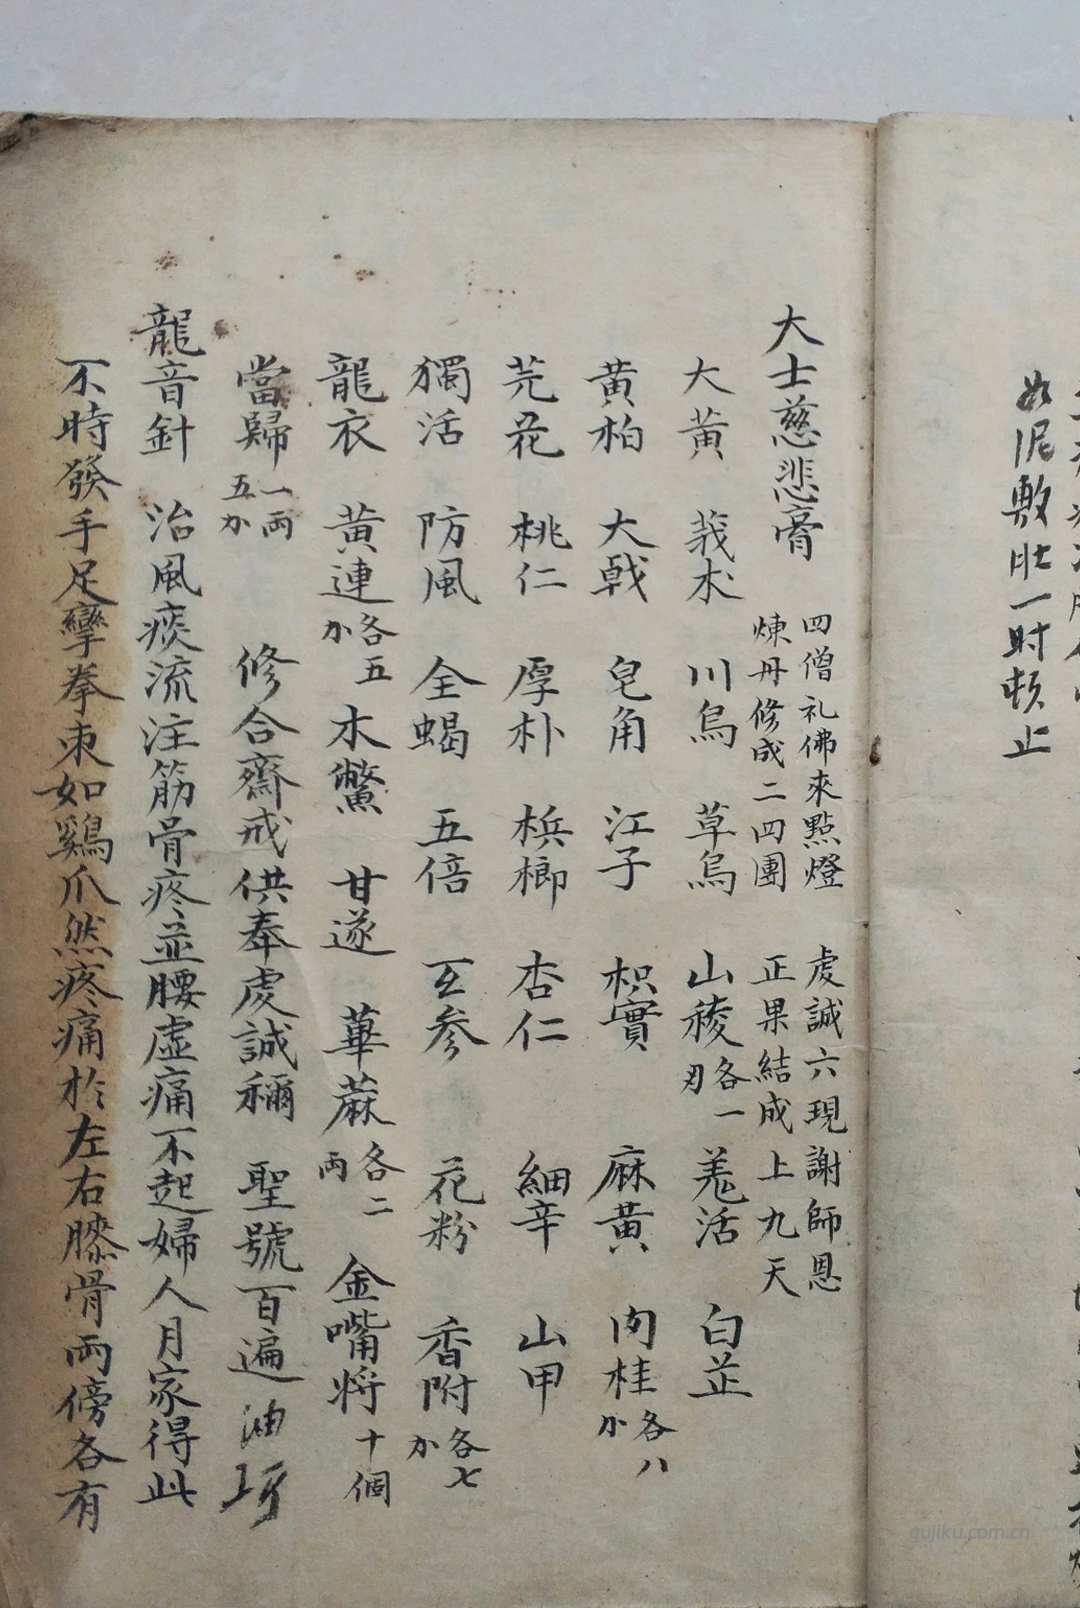 如泥敷肚一时頼止
大士慈悲膏
四僧礼佛來點燈 虔誠六現謝師恩
煉丹修成二四團 正果結成上九天
大黄 莪朮 川烏 草烏 山稜各一刄 羗活 白芷
黄柏 大戟 皂角 江子 枳實 麻黄 肉桂各八
芫花 桃仁 厚朴 梹榔 杏仁 細辛 山甲
獨活 防風 全蝎 五倍 玄参 花粉 香附各七
龍衣 黄連各五 木鱉 甘遂 萆蔴各二両 金嘴将十個
當歸一両五 修合齋戒供奉虔誠稱 聖號百遍 油
龍音針 治風痰流注筋骨疼並腰虚痛不起婦人月家得此
不時發手足攣拳束如鷄爪然疼痛於左右膝骨両傍各有
gujiku.com.cn